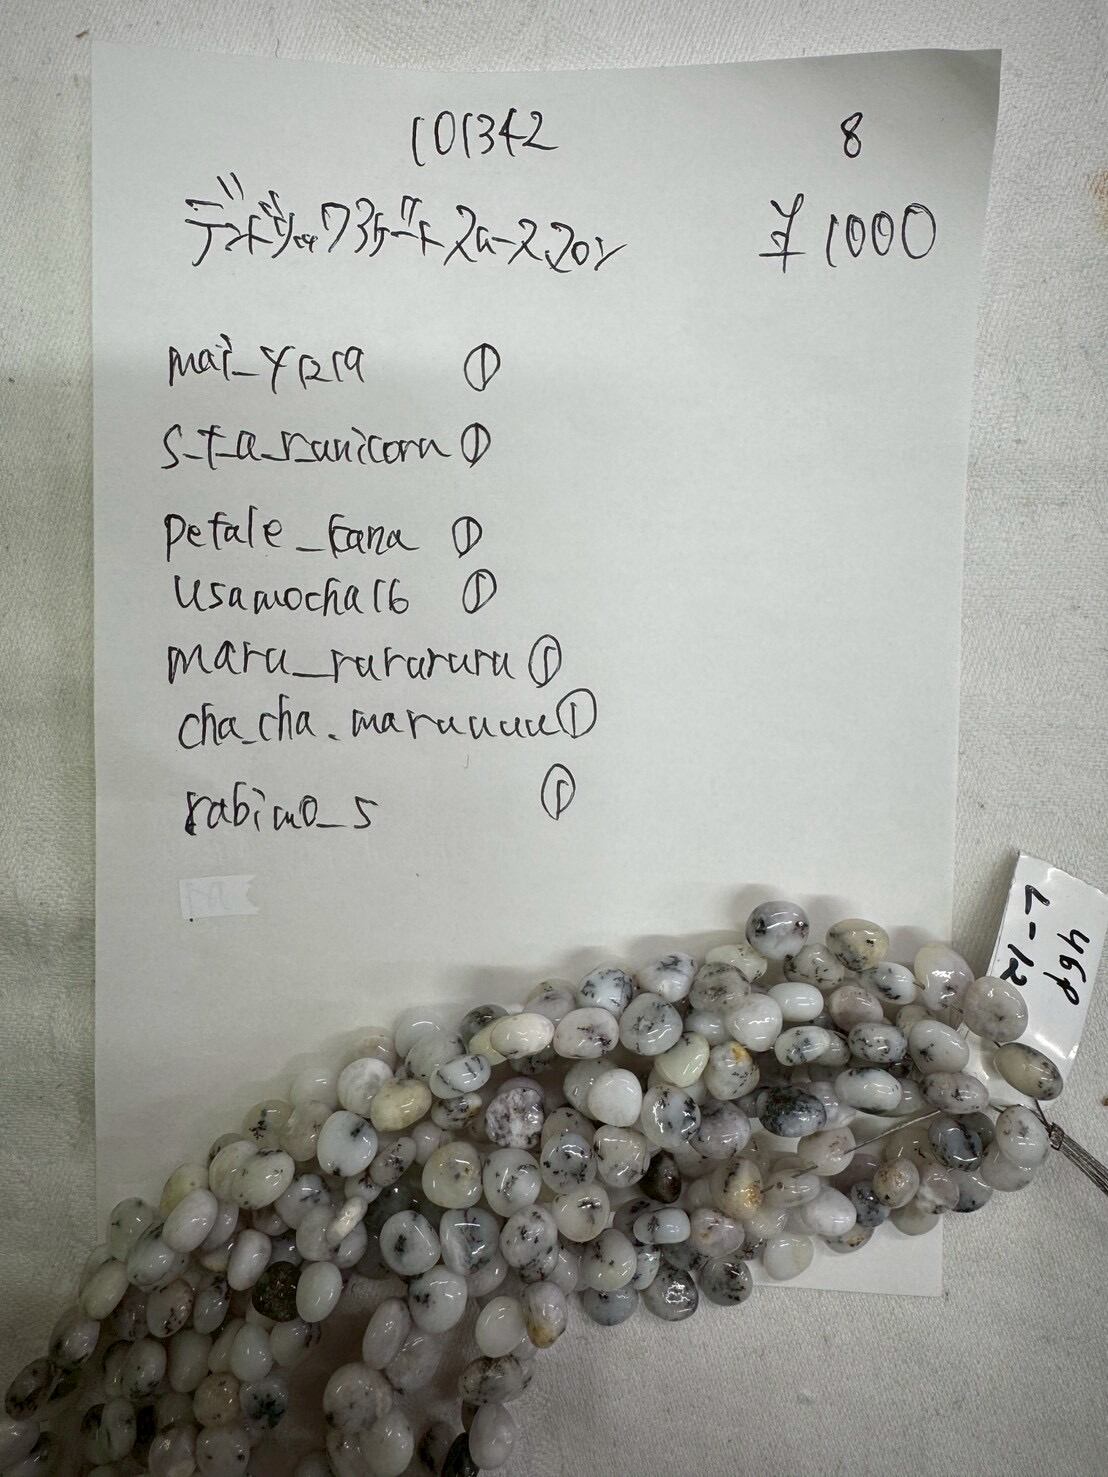 101342 8
デンドリックアゲート ¥1000
mai_y1219 ①
s_t_a_r.unicorn ①
petale_kana ①
usamocha16 ①
maru_rurururu ①
cha_cha.maruuuu ①
rabimo_s ①
46P
L-12